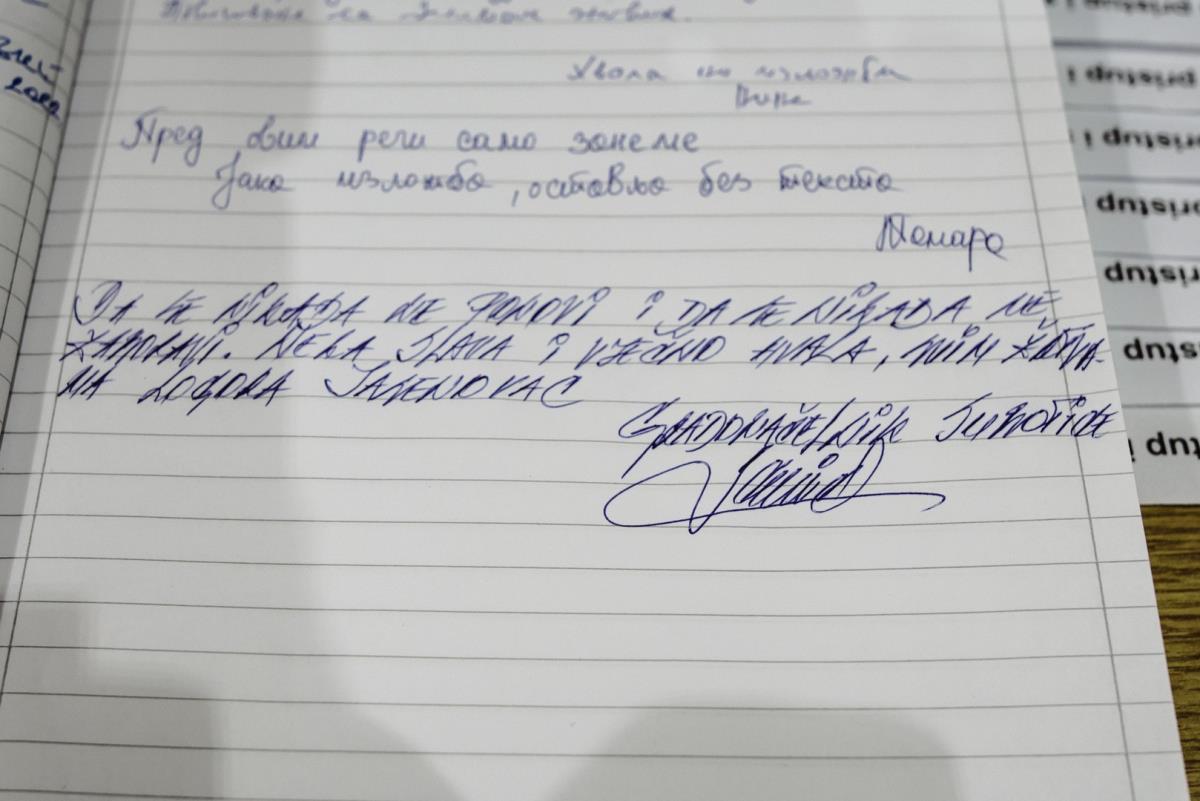 Хвала на изложби
Пред овим речи само занеме
Јака изложба, оставља без текста
Тамара
DA SE NIKADA NE PONOVI i DA SE NIKADA NE
ZABORAVI. NEKA SLAVA i VJEČNO HVALA, SVIM ŽRTVA-
MA LOGORA JASENOVAC
GRADONAČELNIK SUBOTICE
pristup i
pristup i
pristup i
pristup
pristup
pristup
pristup i